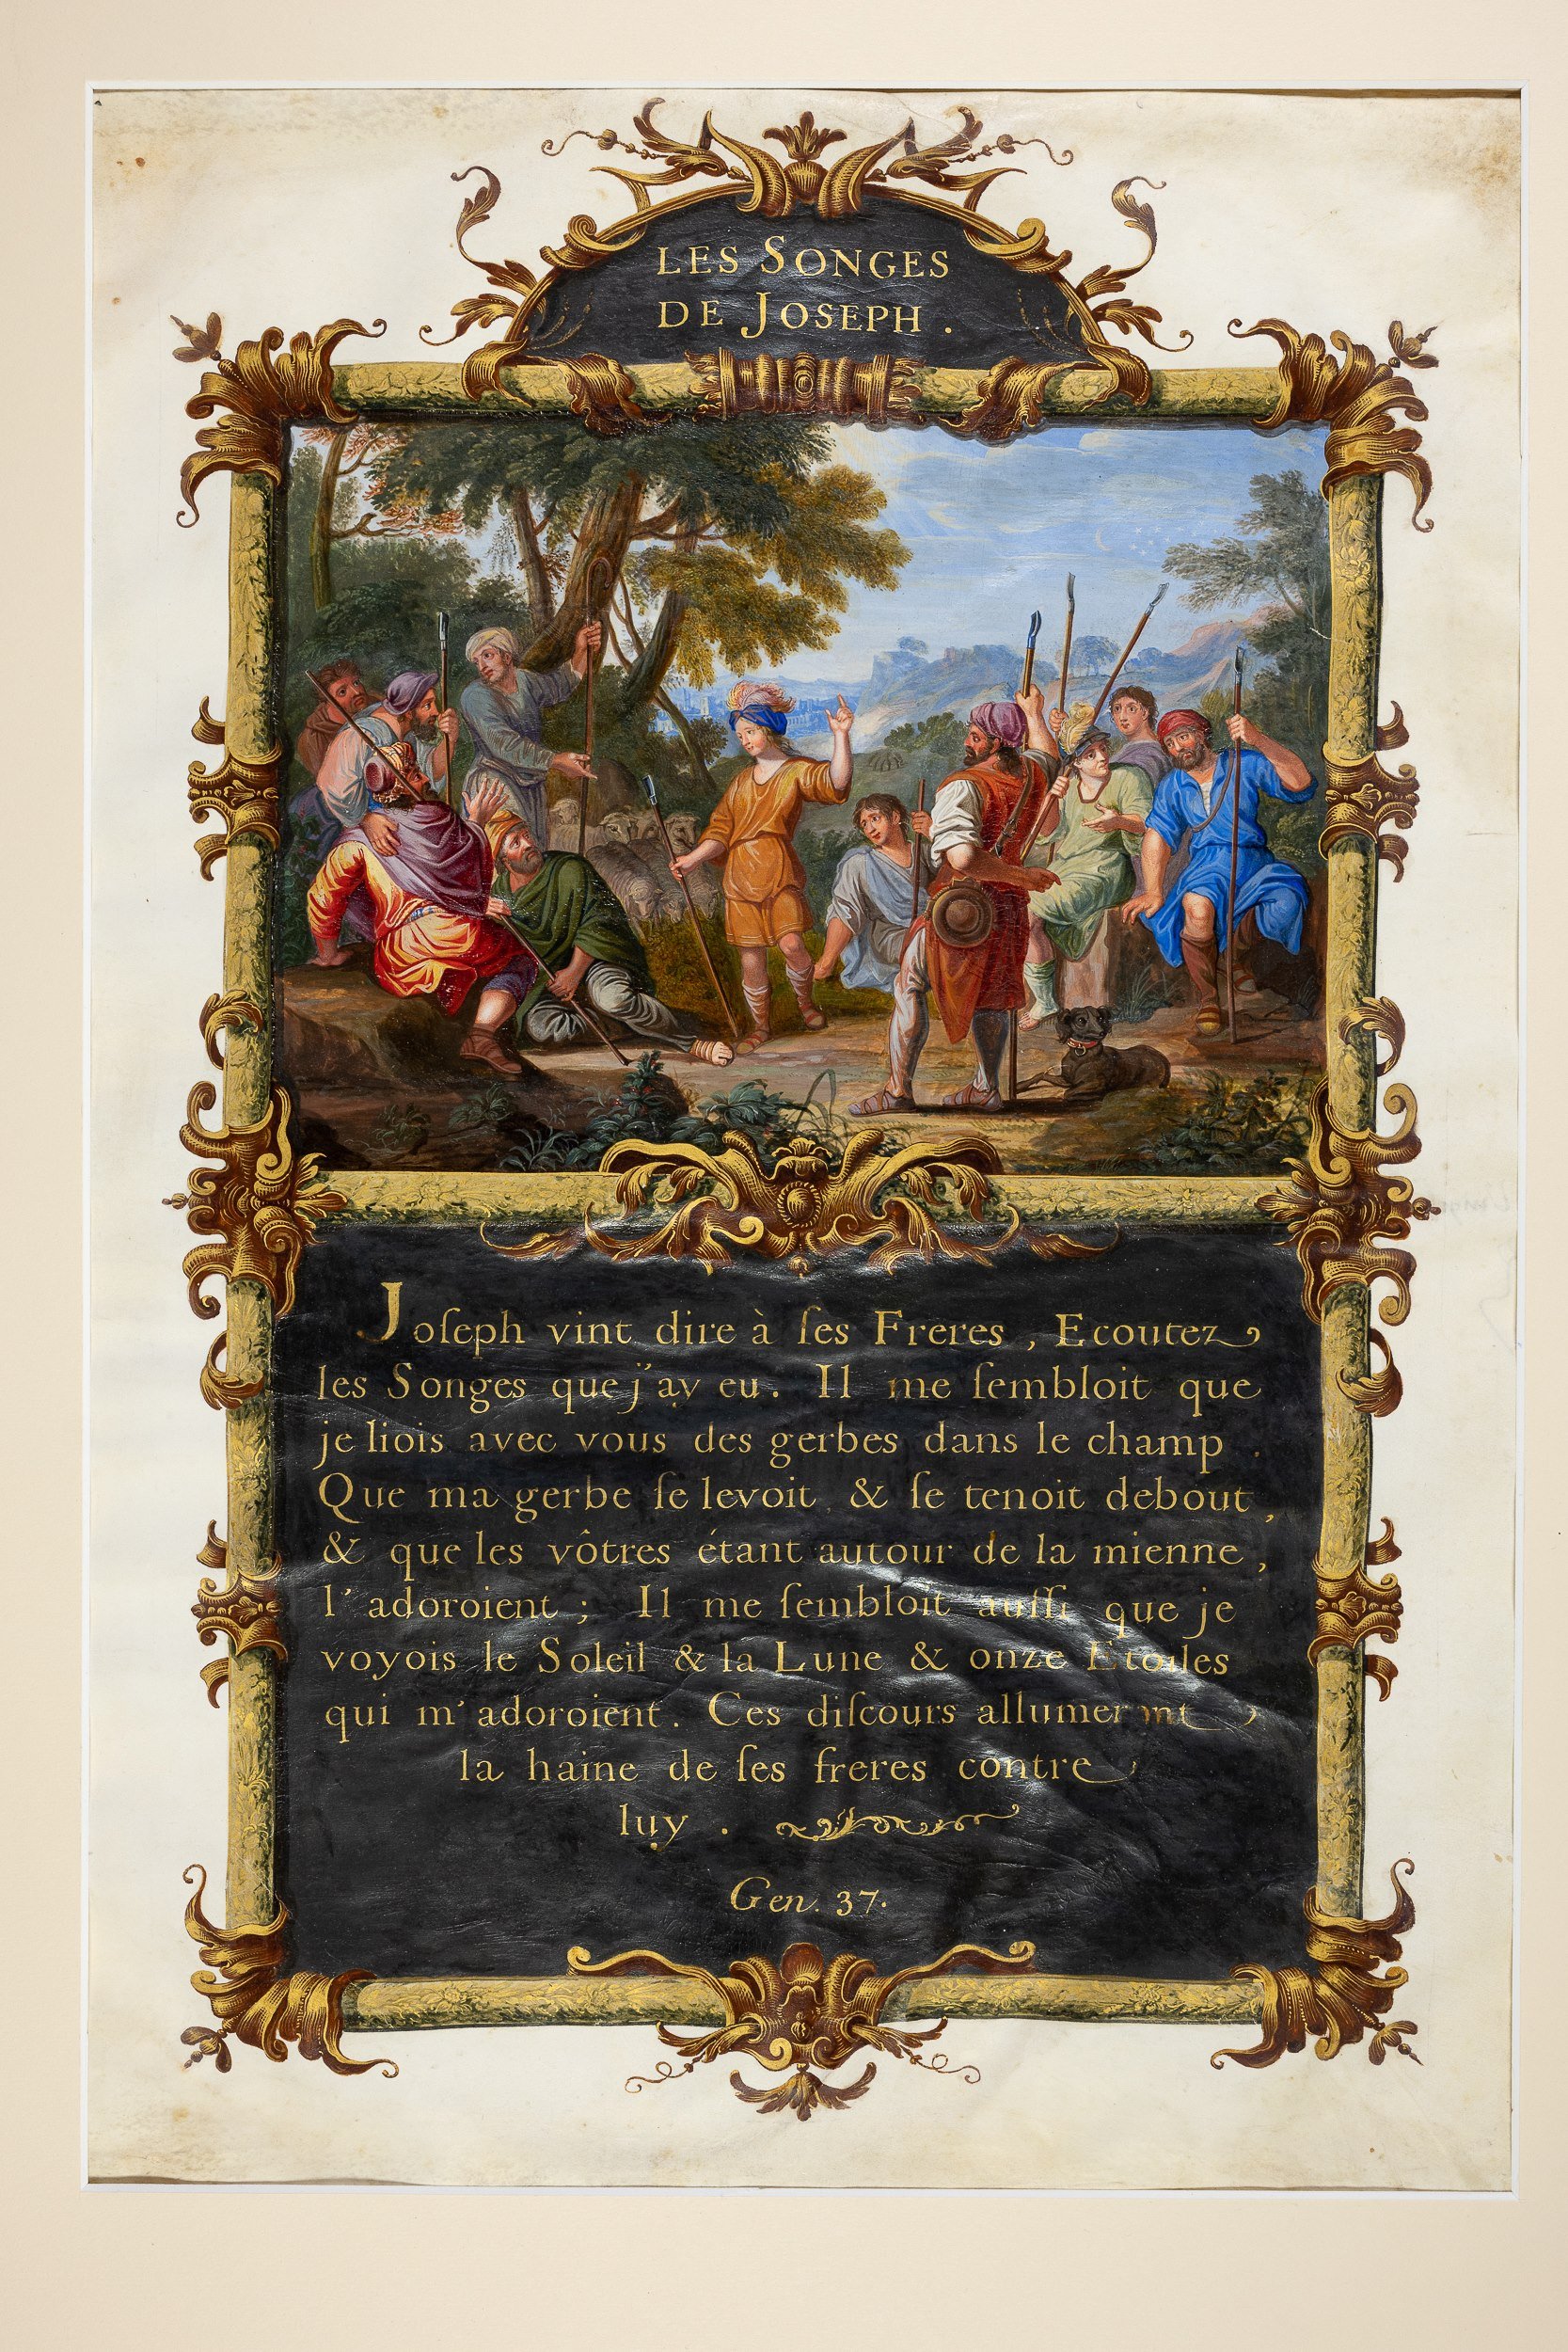 LES SONGES
DE JOSEPH .
Joſeph vint dire à ſes Freres , Ecoutez
les Songes que j'ay eu . Il me ſembloit que
je liois avec vous des gerbes dans le champ .
Que ma gerbe ſe levoit , & ſe tenoit debout ,
& que les vôtres étant autour de la mienne ,
l'adoroient ; Il me ſembloit auſſi que je
voyois le Soleil & la Lune & onze Etoiles
qui m'adoroient . Ces diſcours allumerent
la haine de ſes freres contre
luy .
Gen. 37.